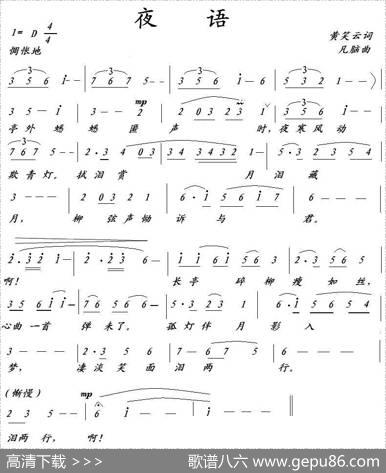 夜 语
1= D 4/4
惆怅地
黄笑云词
凡脑曲
3 5 6 i - - | 7 6 7 5 - - | 3 5 6 i - 6 | 5 3 2 1 - - )
3 5 - i | 3 - - 2 | 2 0 3 2 3 | i 3 5 6 i - - |
mp
亭外 蟋 蟋 匿 声 时, 夜寒风动
7 6 7 5 - - | 2 · 3 4 0 3 | 3 4 3 4 3 2 1 - | 5 · 1 2 3 5 4
欺青灯。 拭泪赏 月泪藏
3 - - - | 2 0 3 2 1 | 6 · i 5 6 i 7 | 6 - - - |
月, 柳 弦声恸 诉 与 君。
2 · 3 2 1 - | 2 · 2 3 6 - | i · 2 3 5 5 2 | 3 · 2 3 5 6 5
啊! 长亭 碎柳瘦如丝,
3 5 6 i i - | 7 6 5 6 6 - | 5 · 3 2 3 | 6 · i 5 6 5 4
心曲一首 弹未了。 孤灯伴 月影入
3 - - - | 2 · 3 5 6 | 7 - - 5 6 | 6 - - - |
梦, 凄淡笑面泪两 行。
(慚慢) mp
2 3 5 - | 6 i - - | i - - - ||
泪两行, 啊!
高清下载 >>> 歌谱八六 www.gepu86.com